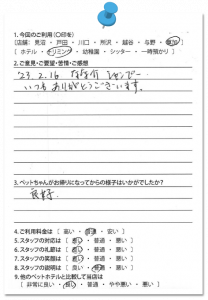 1.今回のご利用(○印を)
[店舗: 見沼 ・ 戸田 ・ 川口 ・ 所沢 ・ 越谷 ・ 与野 ・
[ ホテル ・ トリミング ・ 幼稚園 ・ シッター ・ 一時預かり ]
2.ご意見・ご要望・苦情・ご感想
'23. 2. 16
いつもありがとうございます。
3.ペットちゃんがお帰りになってからの様子はいかがでしたか?
良好
4.ご利用料金は [ 高い ・ 普通 ・ 安い ]
5.スタッフの対応は [ 良い ・ 普通 ・ 悪い ]
6.スタッフの礼節は [ 良い ・ 普通 ・ 悪い ]
7.スタッフの笑顔は [ 良い ・ 普通 ・ 悪い ]
8.スタッフの説明は [ 良い ・ 普通 ・ 悪い ]
9.他のペットホテルと比較して当店は
[ 非常に良い ・ 良い ・ 普通 ・ やや悪い ・ 悪い ]